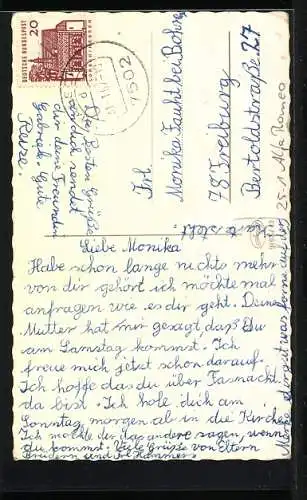 DEUTSCHE BUNDESPOST
20
7502
Frl.
Monika Faucht bei Bohny
78 Freiburg
Bertoldstraße 27
25-1 Alfa Romeo
Die besten Grüße
sendet
dir dein Freundin
Gabriele. Gute
Reise.
Liebe Monika
Habe schon lange nichts mehr
von dir gehört ich möchte mal
anfragen wie es dir geht. Deine
Mutter hat mir gesagt daß Du
am Samstag kommst. Ich
freue mich jetzt schon darauf.
Ich hoffe das du über Fasnacht
da bist. Ich hole dich am
Sonntag morgen ab in die Kirche
Ich möchte dir das andere sagen, wenn
du kommst. Viele Grüße von Eltern
Brüdern und